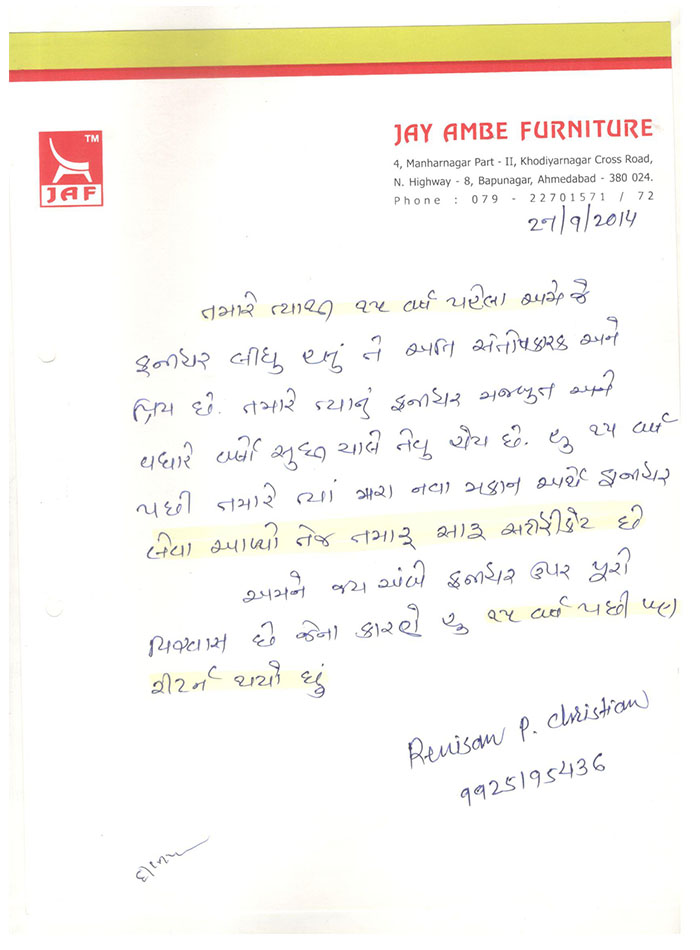 TM
JAF
JAY AMBE FURNITURE
4, Manharnagar Part - II, Khodiyarnagar Cross Road,
N. Highway - 8, Bapunagar, Ahmedabad - 380 024.
Phone : 079 - 22701571 / 72
27/9/2014
તમારે ત્યાથી ૧૫ વર્ષ પહેલા અમે જે
ફર્નીચર લીધુ હતું તે અતિ સંતોષકારક અને
પ્રિય છે. તમારે ત્યાનું ફર્નીચર મજબુત અને
વધારે વર્ષો સુધી ચાલે તેવુ હોય છે. હુ ૧૫ વર્ષ
પછી તમારે ત્યાં મારા નવા મકાન અર્થે ફર્નીચર
લેવા આવ્યો તેજ તમારૂ સારૂ સર્ટીફીકેટ છે
અમને જય અંબે ફર્નીચર ઉપર પૂરો
વિશ્વાસ છે જેના કારણે હુ ૧૫ વર્ષ પછી પણ
રીટર્ન થયો છું
Renison P. Christian
9925195436